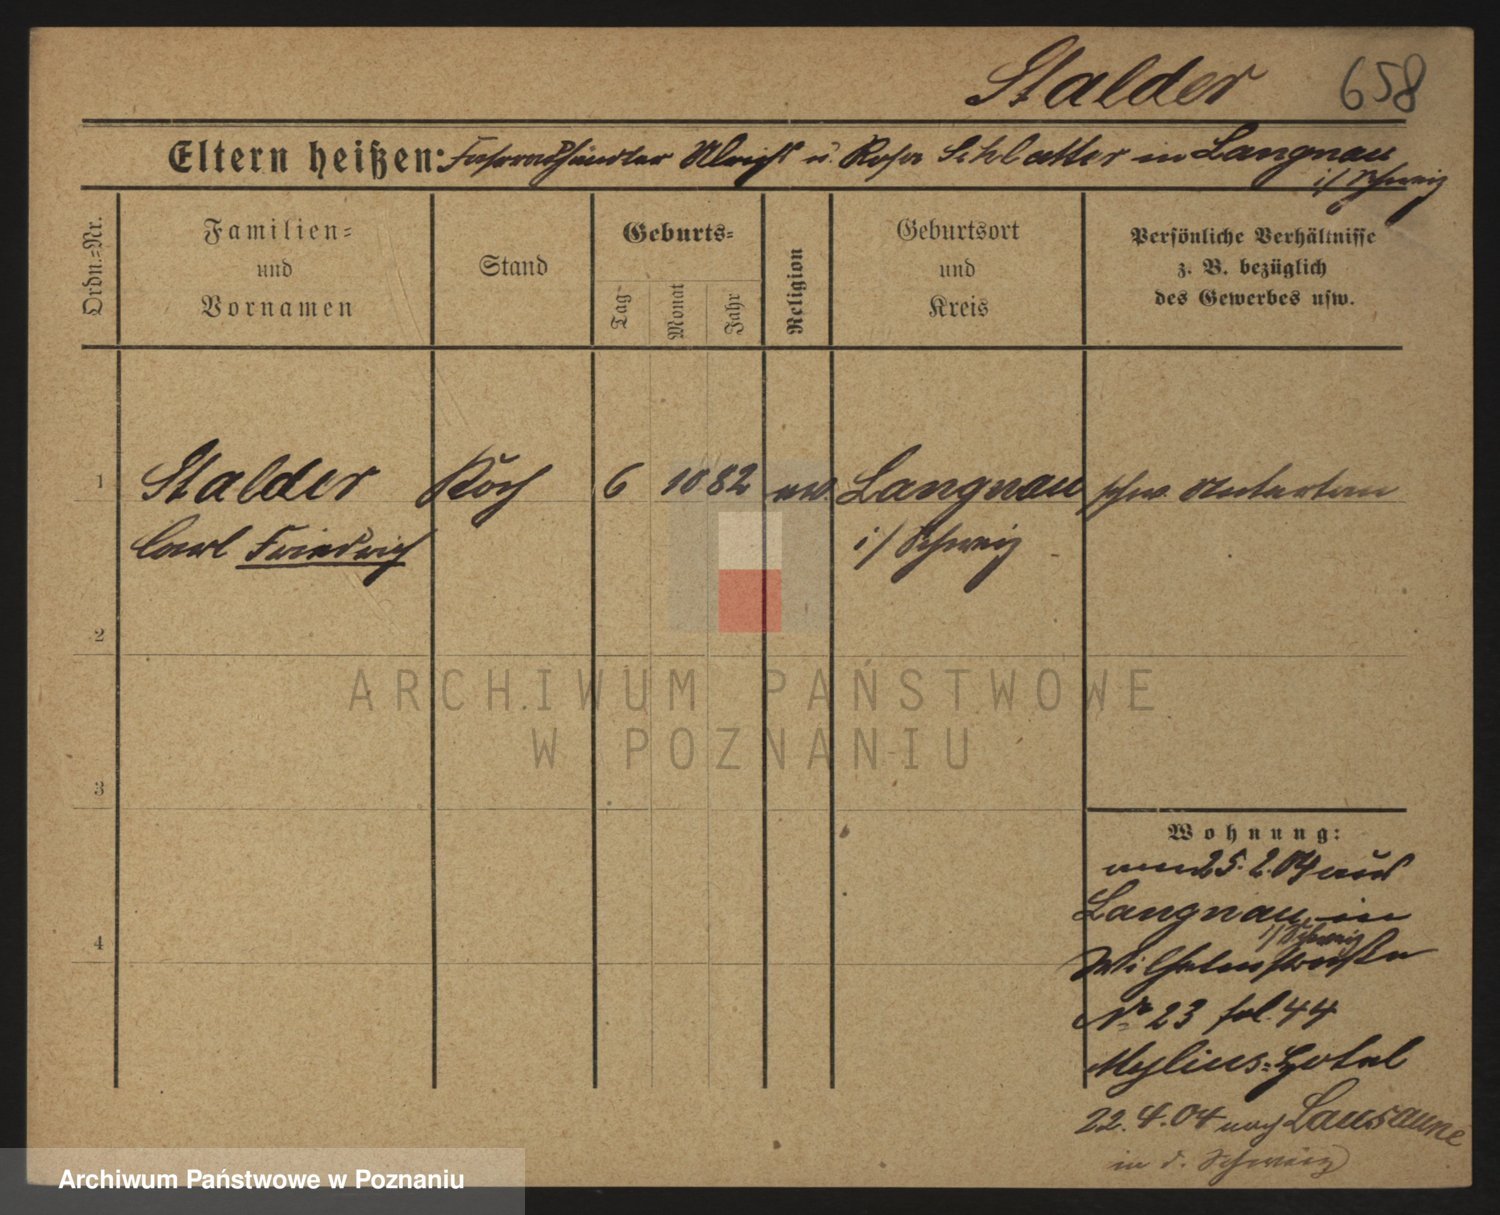 Stalder 658
Eltern heißen: Fahrradhändler Ulrich u. Rosa Schlatter in Langnau
i/ Schweiz
Ordn.-Nr.
Familien-
und
Vornamen
Stand
Geburts-
Tag
Monat
Jahr
Religion
Geburtsort
und
Kreis
Persönliche Verhältnisse
z. B. bezüglich
des Gewerbes usw.
1 Stalder Koch 6 10 82 Langnau
Carl Friedrich i/ Schweiz
2
3
4
Wohnung:
25.2.04 aus
Langnau in
i/ Schweiz
Wilhelmstraße
No 23 fol. 44
Mylius-Hotel
22.4.04 nach Lausanne
in d. Schweiz
ARCHIWUM PAŃSTWOWE
W POZNANIU
Archiwum Państwowe w Poznaniu